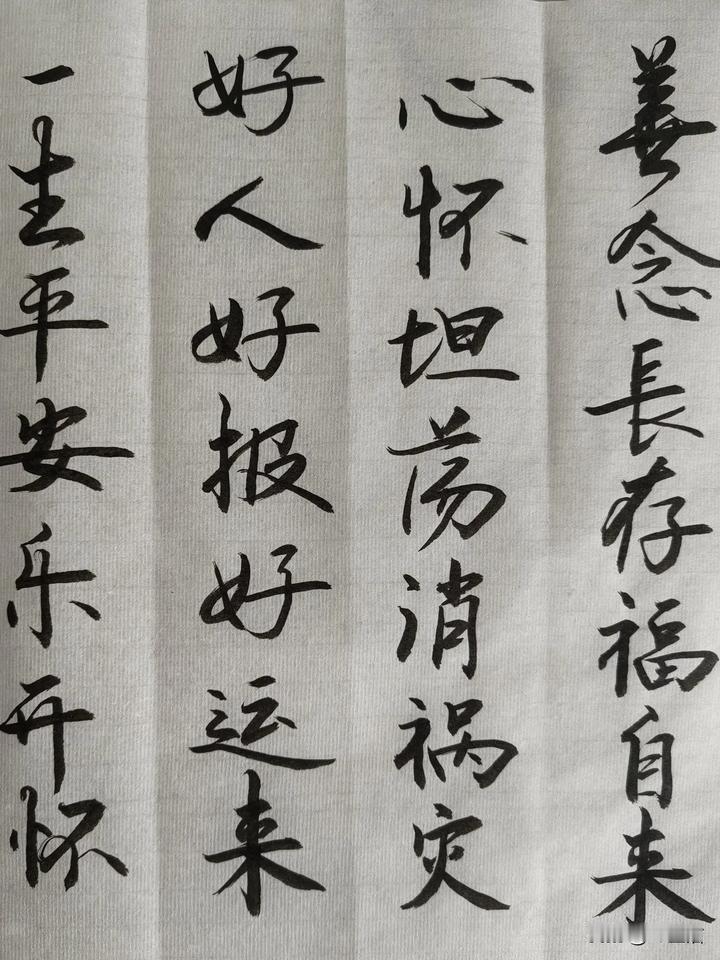 善念長存福自来
心怀坦荡消祸灾
好人好报好运来
一生平安乐开怀